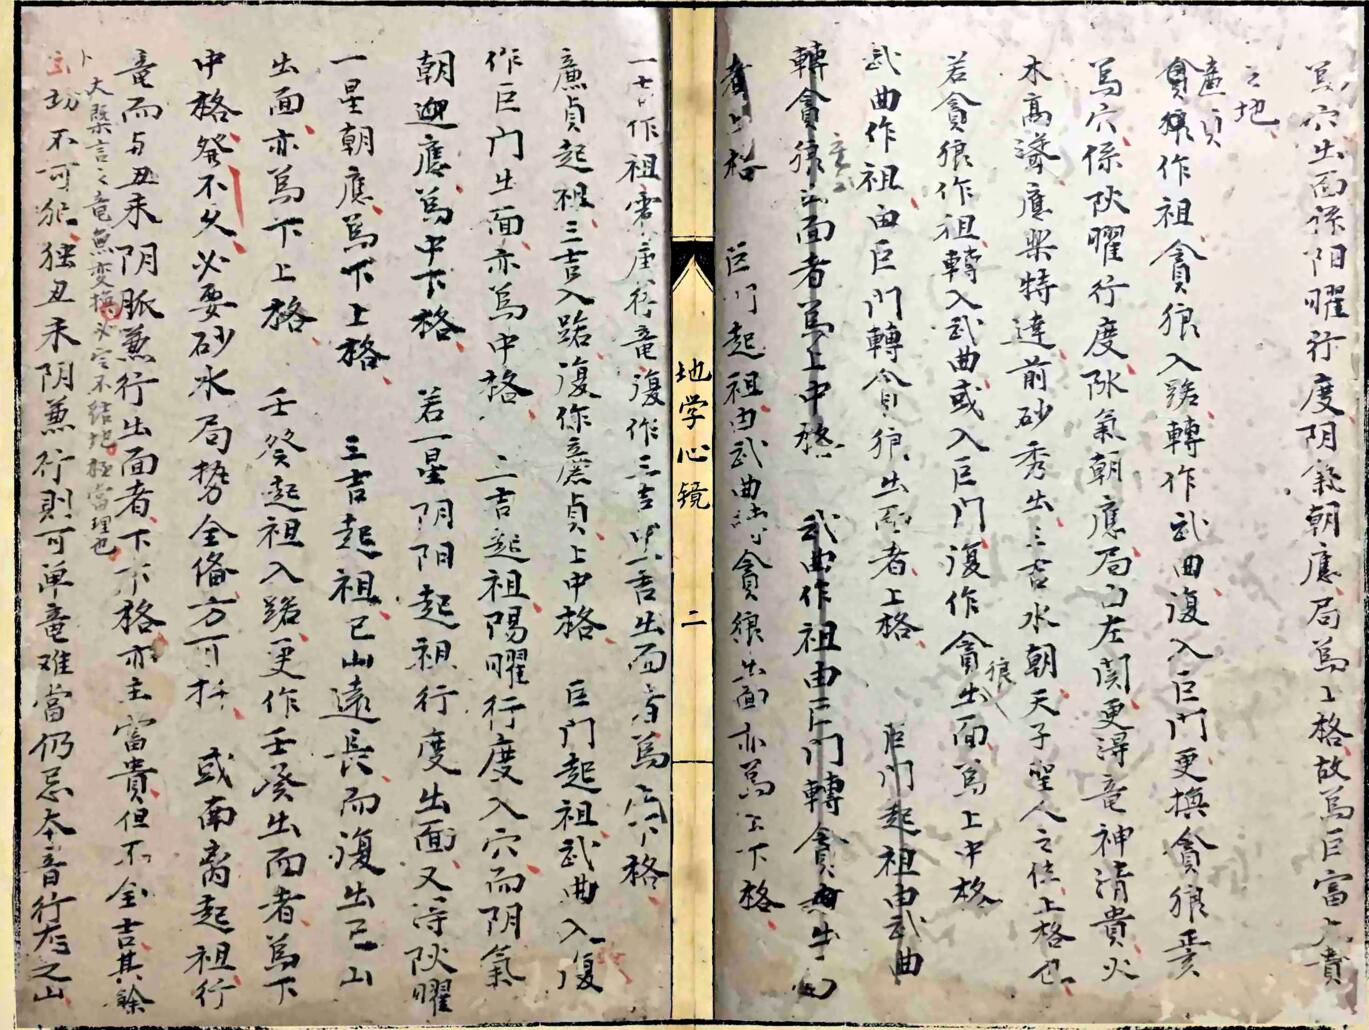 為穴出面係阳曜行度阴氣朝應局為上格故為巨富大貴
之地
廉貞
貪狼作祖貪狼入路轉作武曲復入巨門更換貪狼
為穴係阴曜行度脉氣朝應局口左関更得竜神清貴火
木高聳應樂特達前砂秀出三吉水朝天子聖人之位上格也
若貪狼作祖轉入武曲或入巨門復作貪狼出面為上中格
武曲作祖由巨門轉貪狼出面者上格 巨門起祖由武曲
轉貪狼出面者為上中格 武曲作祖由巨門轉貪出面
者上格 巨門起祖由武曲轉貪狼出面亦為上下格
地学心镜
二
一吉作祖行竜復作三吉出面者為下格
廉貞起祖三吉入路復作廉貞上中格 巨門起祖武曲入復
作巨门出面亦為中格 二吉起祖陽曜行度入穴而阴氣
朝迎應為中下格 若一星阴阳起祖行度出面又得阴曜
一星朝應為下上格 三吉起祖已山遠長而復出已山
出面亦為下上格 壬癸起祖入路更作壬癸出面者為下
中格發不久必要砂水局勢全俻方可扦 或南离起祖行
竜而与丑未阴脈兼行出面者下下格亦主富貴但不全吉其餘
大槩言之竜無变换必定不結地極當理也
切不可犯独丑未阴兼行則可单竜难當仍忌本音行龙之山